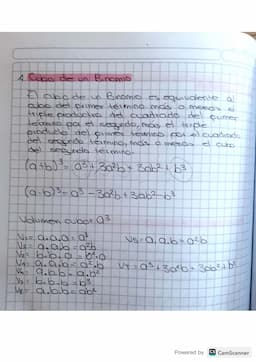 4. Cubo de un Binomio
El cubo de un Binomio es equivalente al
cubo del primer término más o menos el
triple productos del cuadrado del primer
término por el segundo, más el triple
producto del primer término por el cuadrado
del segundo término, más o menos el cubo
del segundo término.
(a+b)³ = a³+3a²b+3ab²+b³
(a-b)³ = a³-3a²b+3ab²-b³
Volumen cubo: a³
V1= a.a.a = a³
V8= a.a.b = a²b
V2= a.a.b = a²b
V3= b.b.a = b².a
V4= a.a.b = a².b
VT= a³+3a²b+3ab²+b³
V5= a.b.b = a.b²
V6= b.b.b = b³
V7= a.b.b = ab²
Powered by CS CamScanner